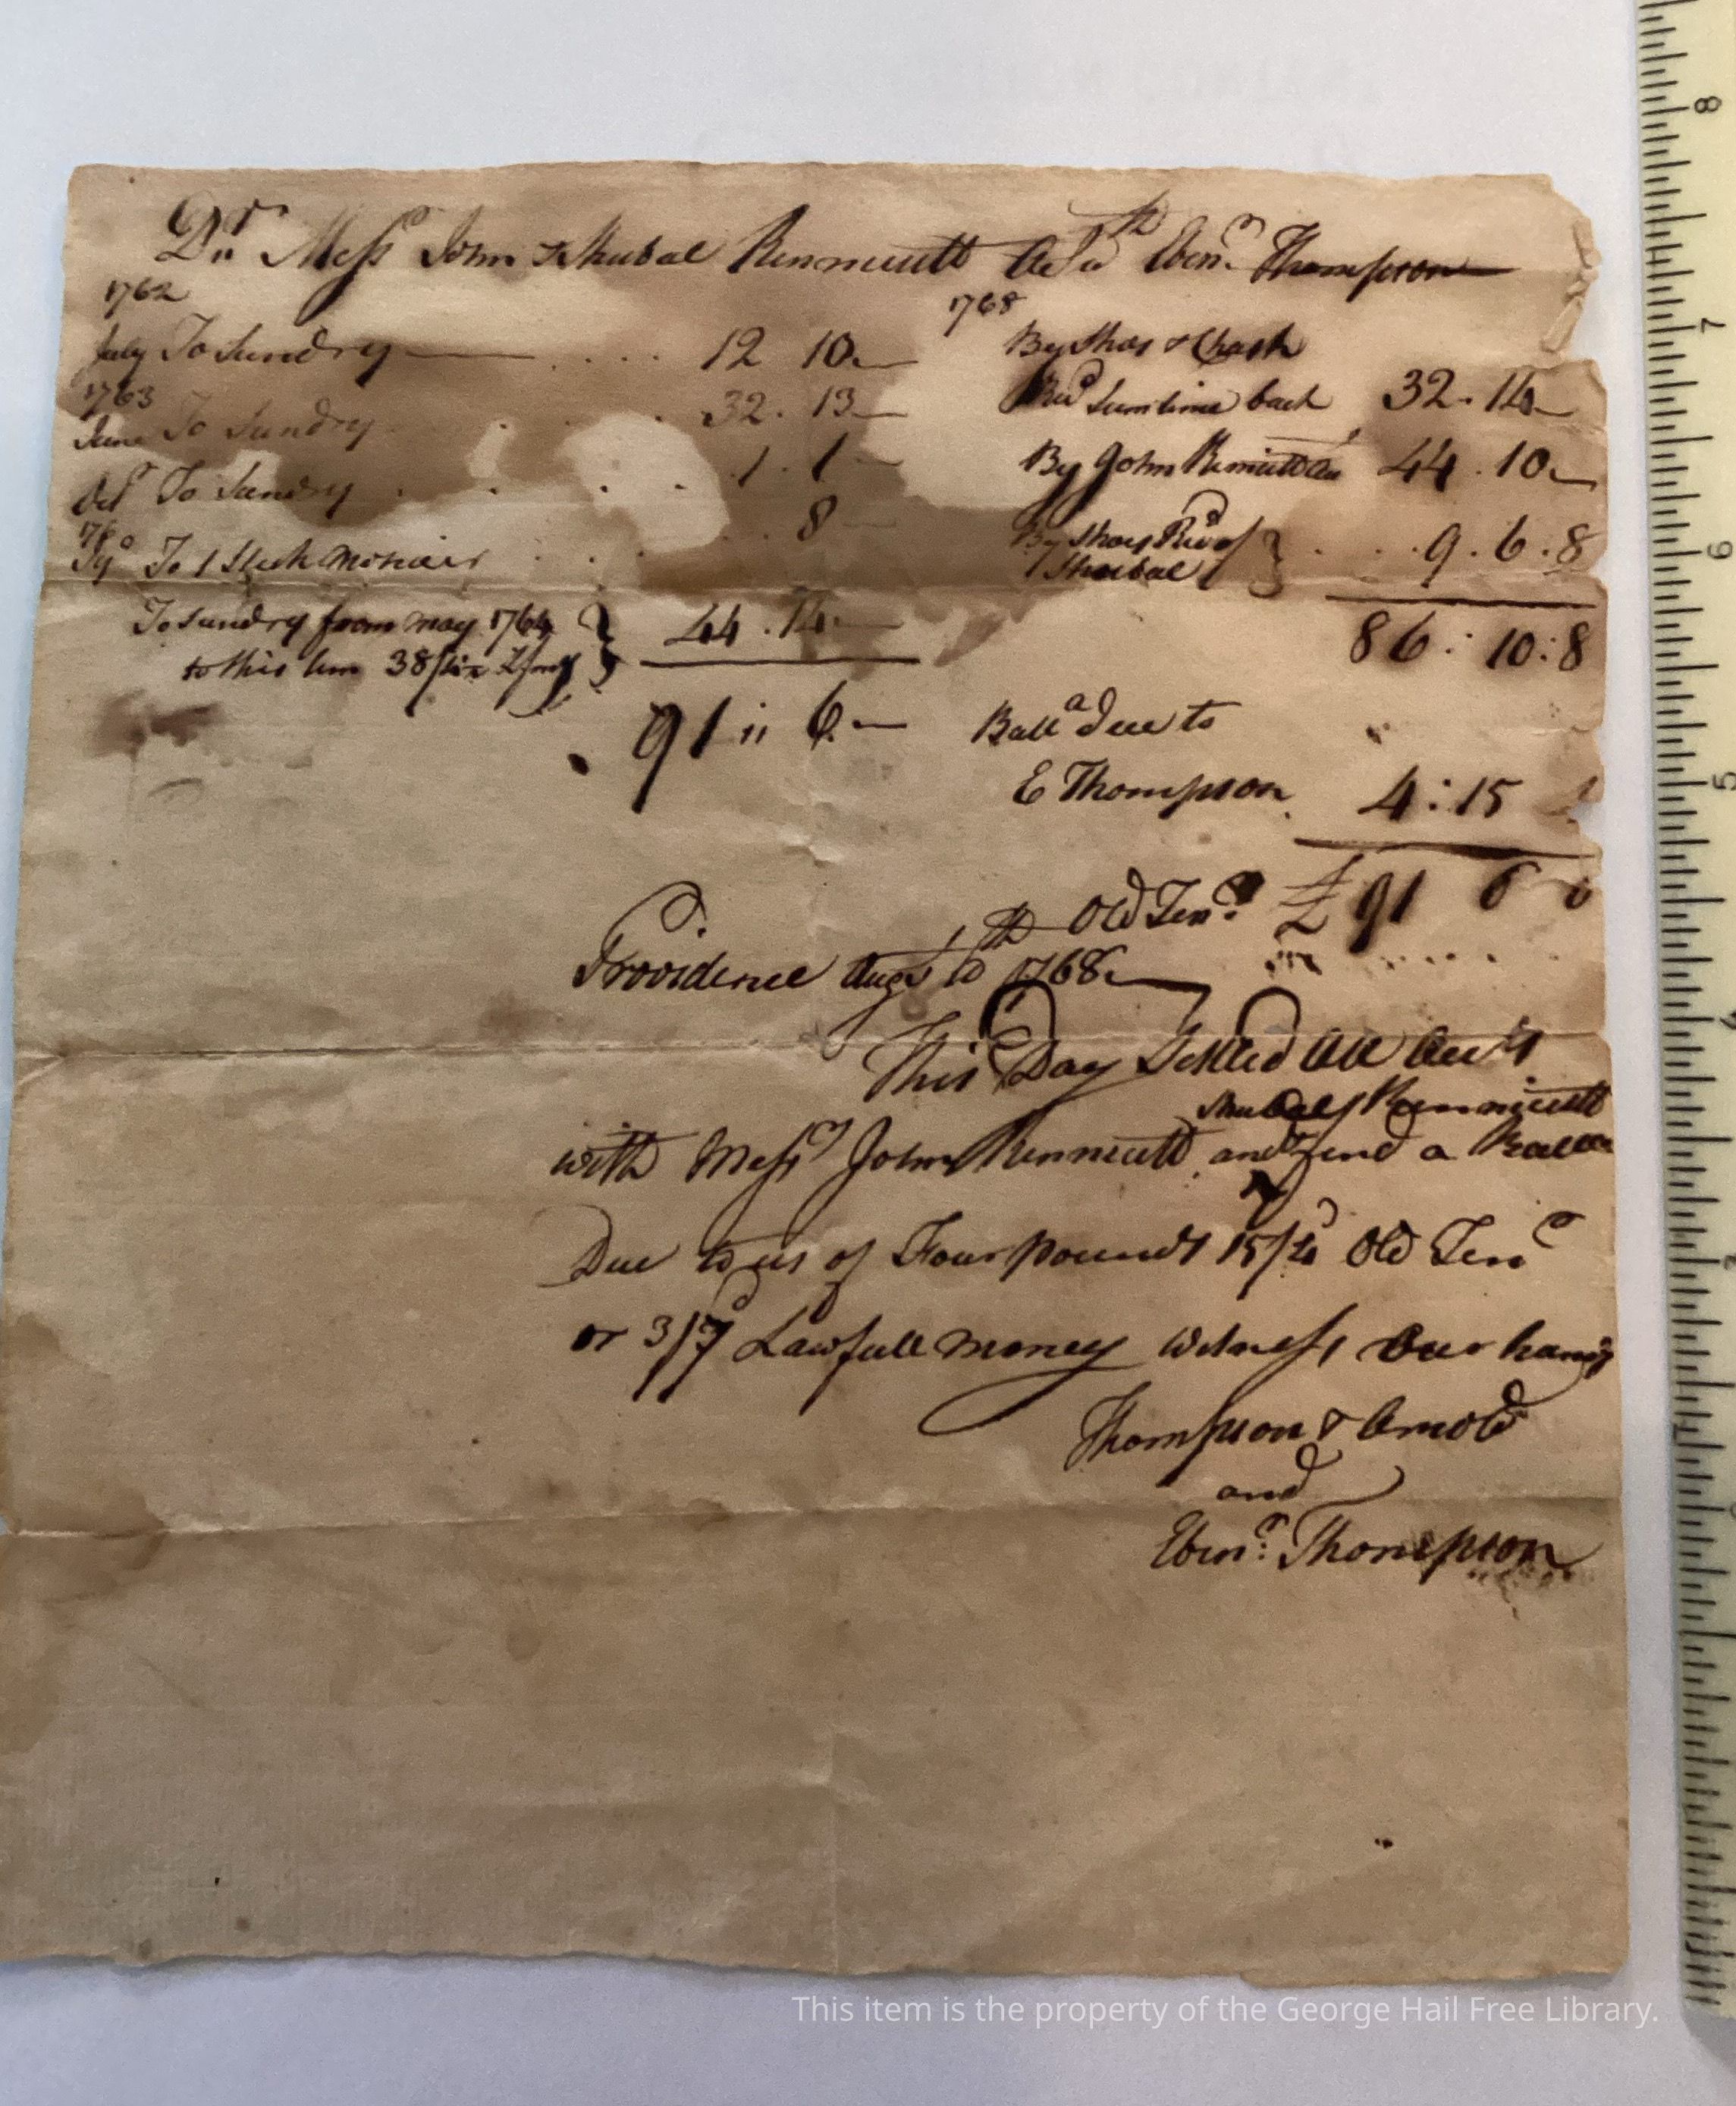 Dr Messrs John & Shubal Kennicutt Acct with Ebenr Thompson
1762
July To Sundry 12 10
1763
June To Sundry 32. 13
Octr To Sundry 1. 1
To 1 Stick Mohair 8
To sundry from may 1764
to this time 38/ 44. 14
91 " 6
1768
By Shoes & Cash
Recd Sumtime back 32. 14
By John Kennicutt 44. 10
By Shoes Recd of
Shubal 9. 6. 8
86: 10: 8
Balla due to
E Thompson 4: 15
Old Tenr £ 91 6 0
Providence Augst 10th 1768
This Day Settled All Acc'ts
Shubael Kennicutt
with Messrs John Kennicutt and find a
Due to us of Four pounds 15/4 Old Tenr
or 3/7 Lawfull money Witness Our hands
Thompson & Arnold
and
Ebenr Thompson
8
7
6
5
4
3
This item is the property of the George Hail Free Library.